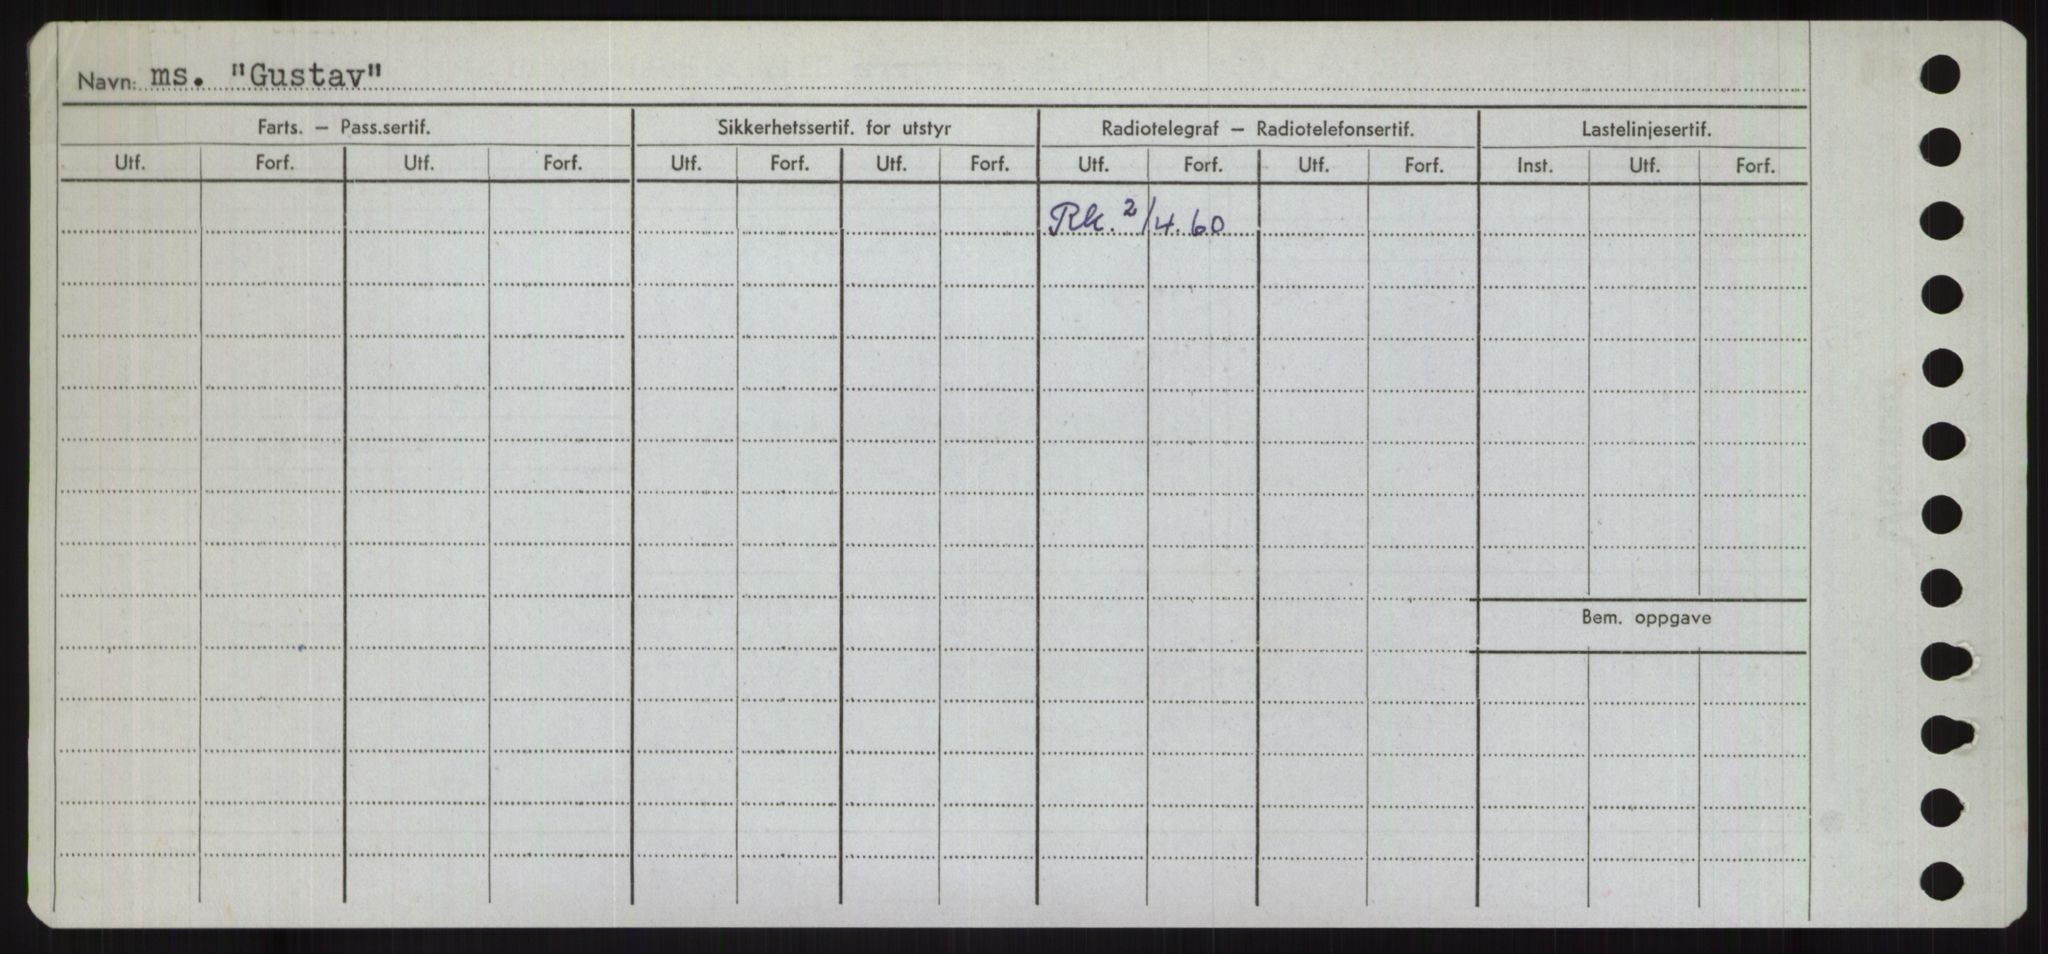 Navn: ms. "Gustav"
Farts. – Pass.sertif. Sikkerhetssertif. for utstyr Radiotelegraf – Radiotelefonsertif. Lastelinjesertif.
Utf. Forf. Utf. Forf. Utf. Forf. Utf. Forf. Utf. Forf. Utf. Forf. Inst. Utf. Forf.
Rk. 2/4.60
Bem. oppgave